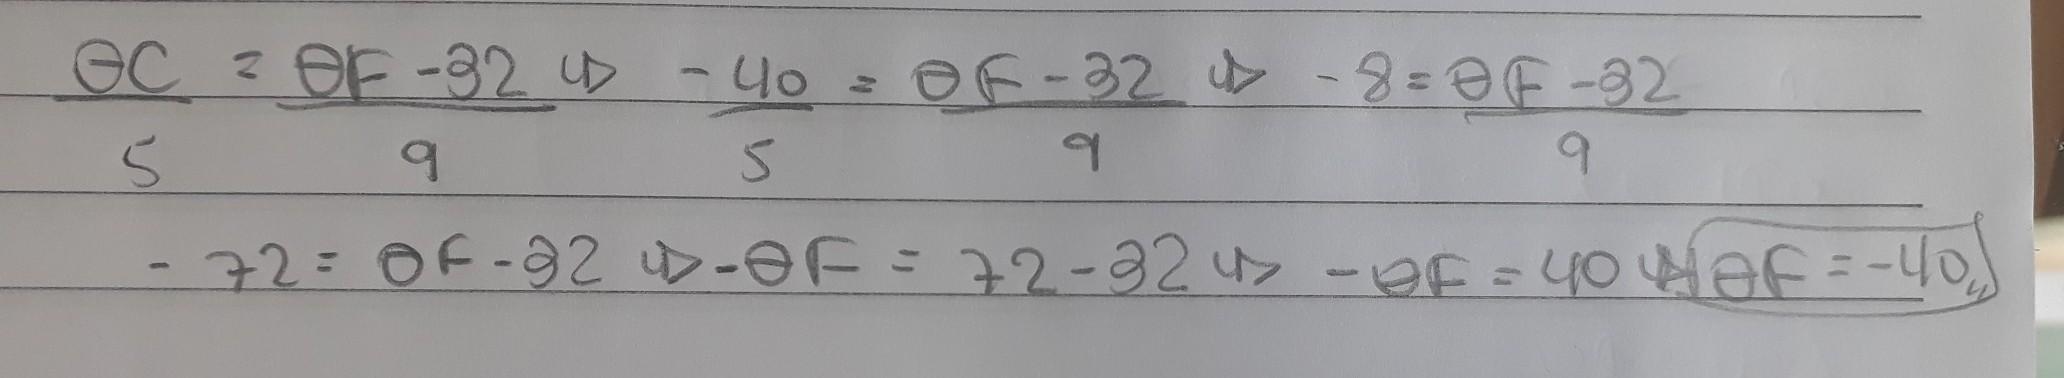 θC/5 = θF-32/9 ⇔ -40/5 = θF-32/9 ⇔ -8 = θF-32/9
-72 = θF-32 ⇔ -θF = 72-32 ⇔ -θF = 40 ⇔ θF = -40,,